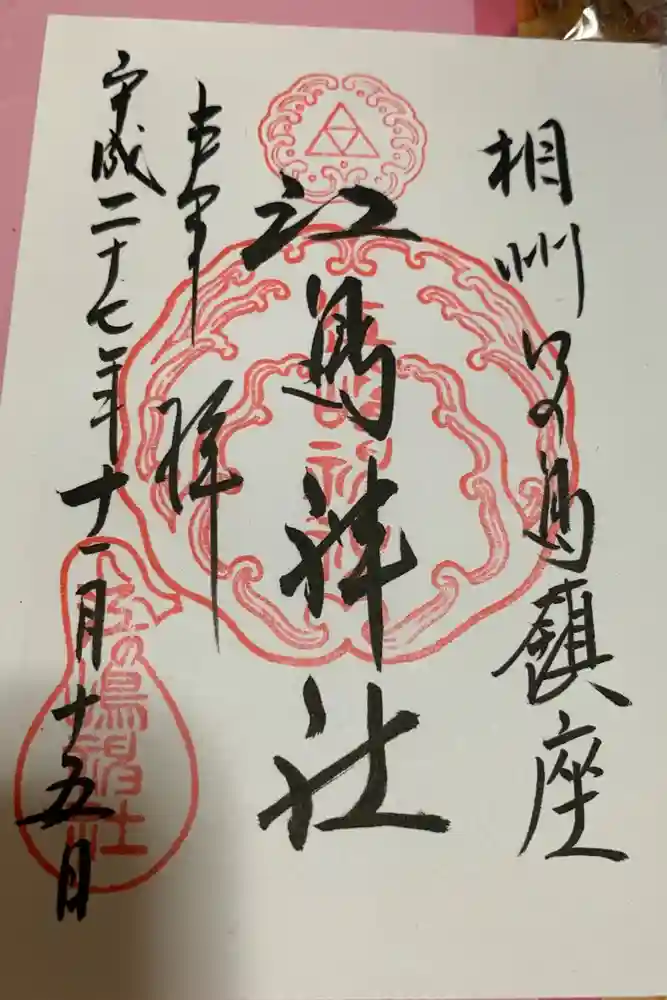 相州江の島鎮座
江島神社
奉拝
平成二十七年十一月十五日
江の嶋神社